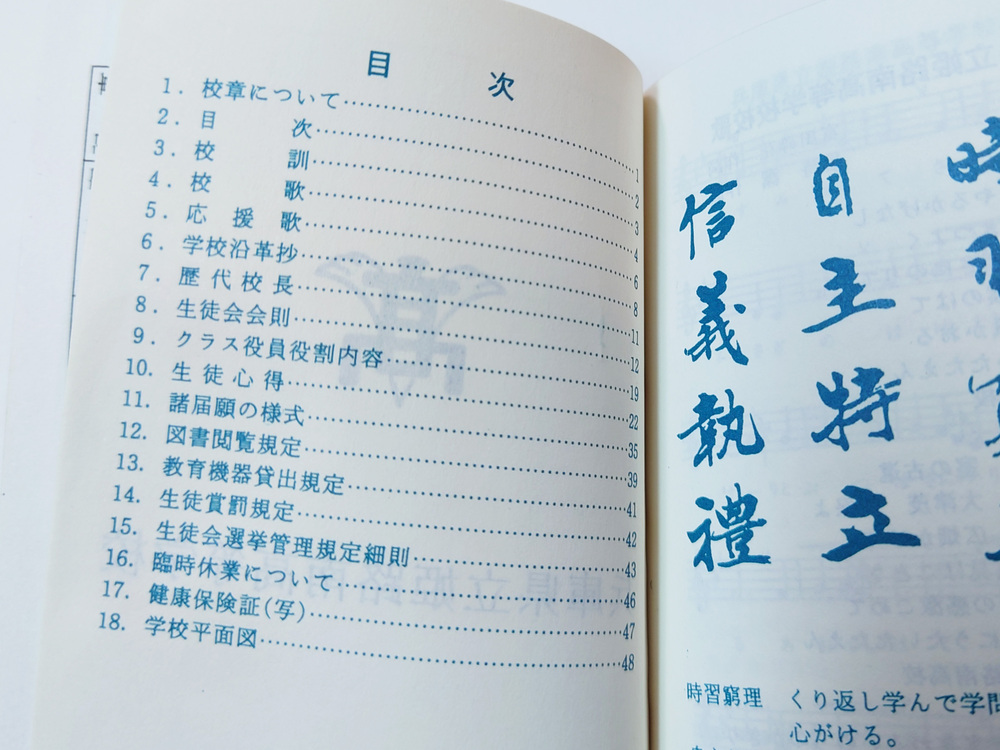 目 次
1. 校章について……1
2. 目 次……2
3. 校 訓……3
4. 校 歌……4
5. 応 援 歌……6
6. 学校沿革抄……8
7. 歴 代 校 長……11
8. 生徒会会則……12
9. クラス役員役割内容……19
10. 生 徒 心 得……22
11. 諸届願の様式……35
12. 図書閲覧規定……39
13. 教育機器貸出規定……41
14. 生徒賞罰規定……42
15. 生徒会選挙管理規定細則……43
16. 臨時休業について……46
17. 健康保険証(写)……47
18. 学校平面図……48
時習
自主特立
信義執禮
時習窮理 くり返し学んで学問
心がける。